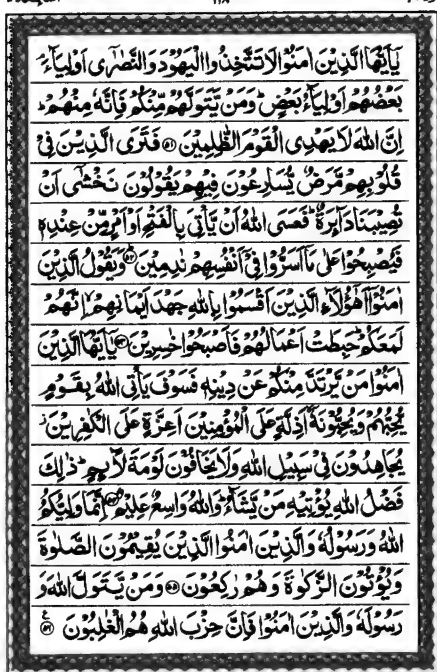 يٰۤاَيُّهَا الَّذِيْنَ اٰمَنُوْا لَا تَتَّخِذُوا الْيَهُوْدَ وَالنَّصٰرٰۤى اَوْلِيَآءَ ۘ
بَعْضُهُمْ اَوْلِيَآءُ بَعْضٍ ؕ وَمَنْ يَّتَوَلَّهُمْ مِّنْكُمْ فَاِنَّهٗ مِنْهُمْ ؕ
اِنَّ اللّٰهَ لَا يَهْدِى الْقَوْمَ الظّٰلِمِيْنَ ﴿۵۱﴾ فَتَرَى الَّذِيْنَ فِىْ
قُلُوْبِهِمْ مَّرَضٌ يُّسَارِعُوْنَ فِيْهِمْ يَقُوْلُوْنَ نَخْشٰۤى اَنْ
تُصِيْبَنَا دَآئِرَةٌ ؕ فَعَسَى اللّٰهُ اَنْ يَّاْتِىَ بِالْفَتْحِ اَوْ اَمْرٍ مِّنْ عِنْدِهٖ
فَيُصْبِحُوْا عَلٰى مَاۤ اَسَرُّوْا فِىْۤ اَنْفُسِهِمْ نٰدِمِيْنَ ﴿۵۲﴾ وَيَقُوْلُ الَّذِيْنَ
اٰمَنُوْۤا اَهٰۤؤُلَآءِ الَّذِيْنَ اَقْسَمُوْا بِاللّٰهِ جَهْدَ اَيْمَانِهِمْ ۙ اِنَّهُمْ
لَمَعَكُمْ ؕ حَبِطَتْ اَعْمَالُهُمْ فَاَصْبَحُوْا خٰسِرِيْنَ ﴿۵۳﴾ يٰۤاَيُّهَا الَّذِيْنَ
اٰمَنُوْا مَنْ يَّرْتَدَّ مِنْكُمْ عَنْ دِيْنِهٖ فَسَوْفَ يَاْتِى اللّٰهُ بِقَوْمٍ
يُّحِبُّهُمْ وَيُحِبُّوْنَهٗۤ ۙ اَذِلَّةٍ عَلَى الْمُؤْمِنِيْنَ اَعِزَّةٍ عَلَى الْكٰفِرِيْنَ ؗ
يُجَاهِدُوْنَ فِىْ سَبِيْلِ اللّٰهِ وَلَا يَخَافُوْنَ لَوْمَةَ لَآئِمٍ ؕ ذٰلِكَ
فَضْلُ اللّٰهِ يُؤْتِيْهِ مَنْ يَّشَآءُ ؕ وَاللّٰهُ وَاسِعٌ عَلِيْمٌ ﴿۵۴﴾ اِنَّمَا وَلِيُّكُمُ
اللّٰهُ وَرَسُوْلُهٗ وَالَّذِيْنَ اٰمَنُوا الَّذِيْنَ يُقِيْمُوْنَ الصَّلٰوةَ
وَيُؤْتُوْنَ الزَّكٰوةَ وَهُمْ رٰكِعُوْنَ ﴿۵۵﴾ وَمَنْ يَّتَوَلَّ اللّٰهَ وَ
رَسُوْلَهٗ وَالَّذِيْنَ اٰمَنُوْا فَاِنَّ حِزْبَ اللّٰهِ هُمُ الْغٰلِبُوْنَ ﴿۵۶﴾